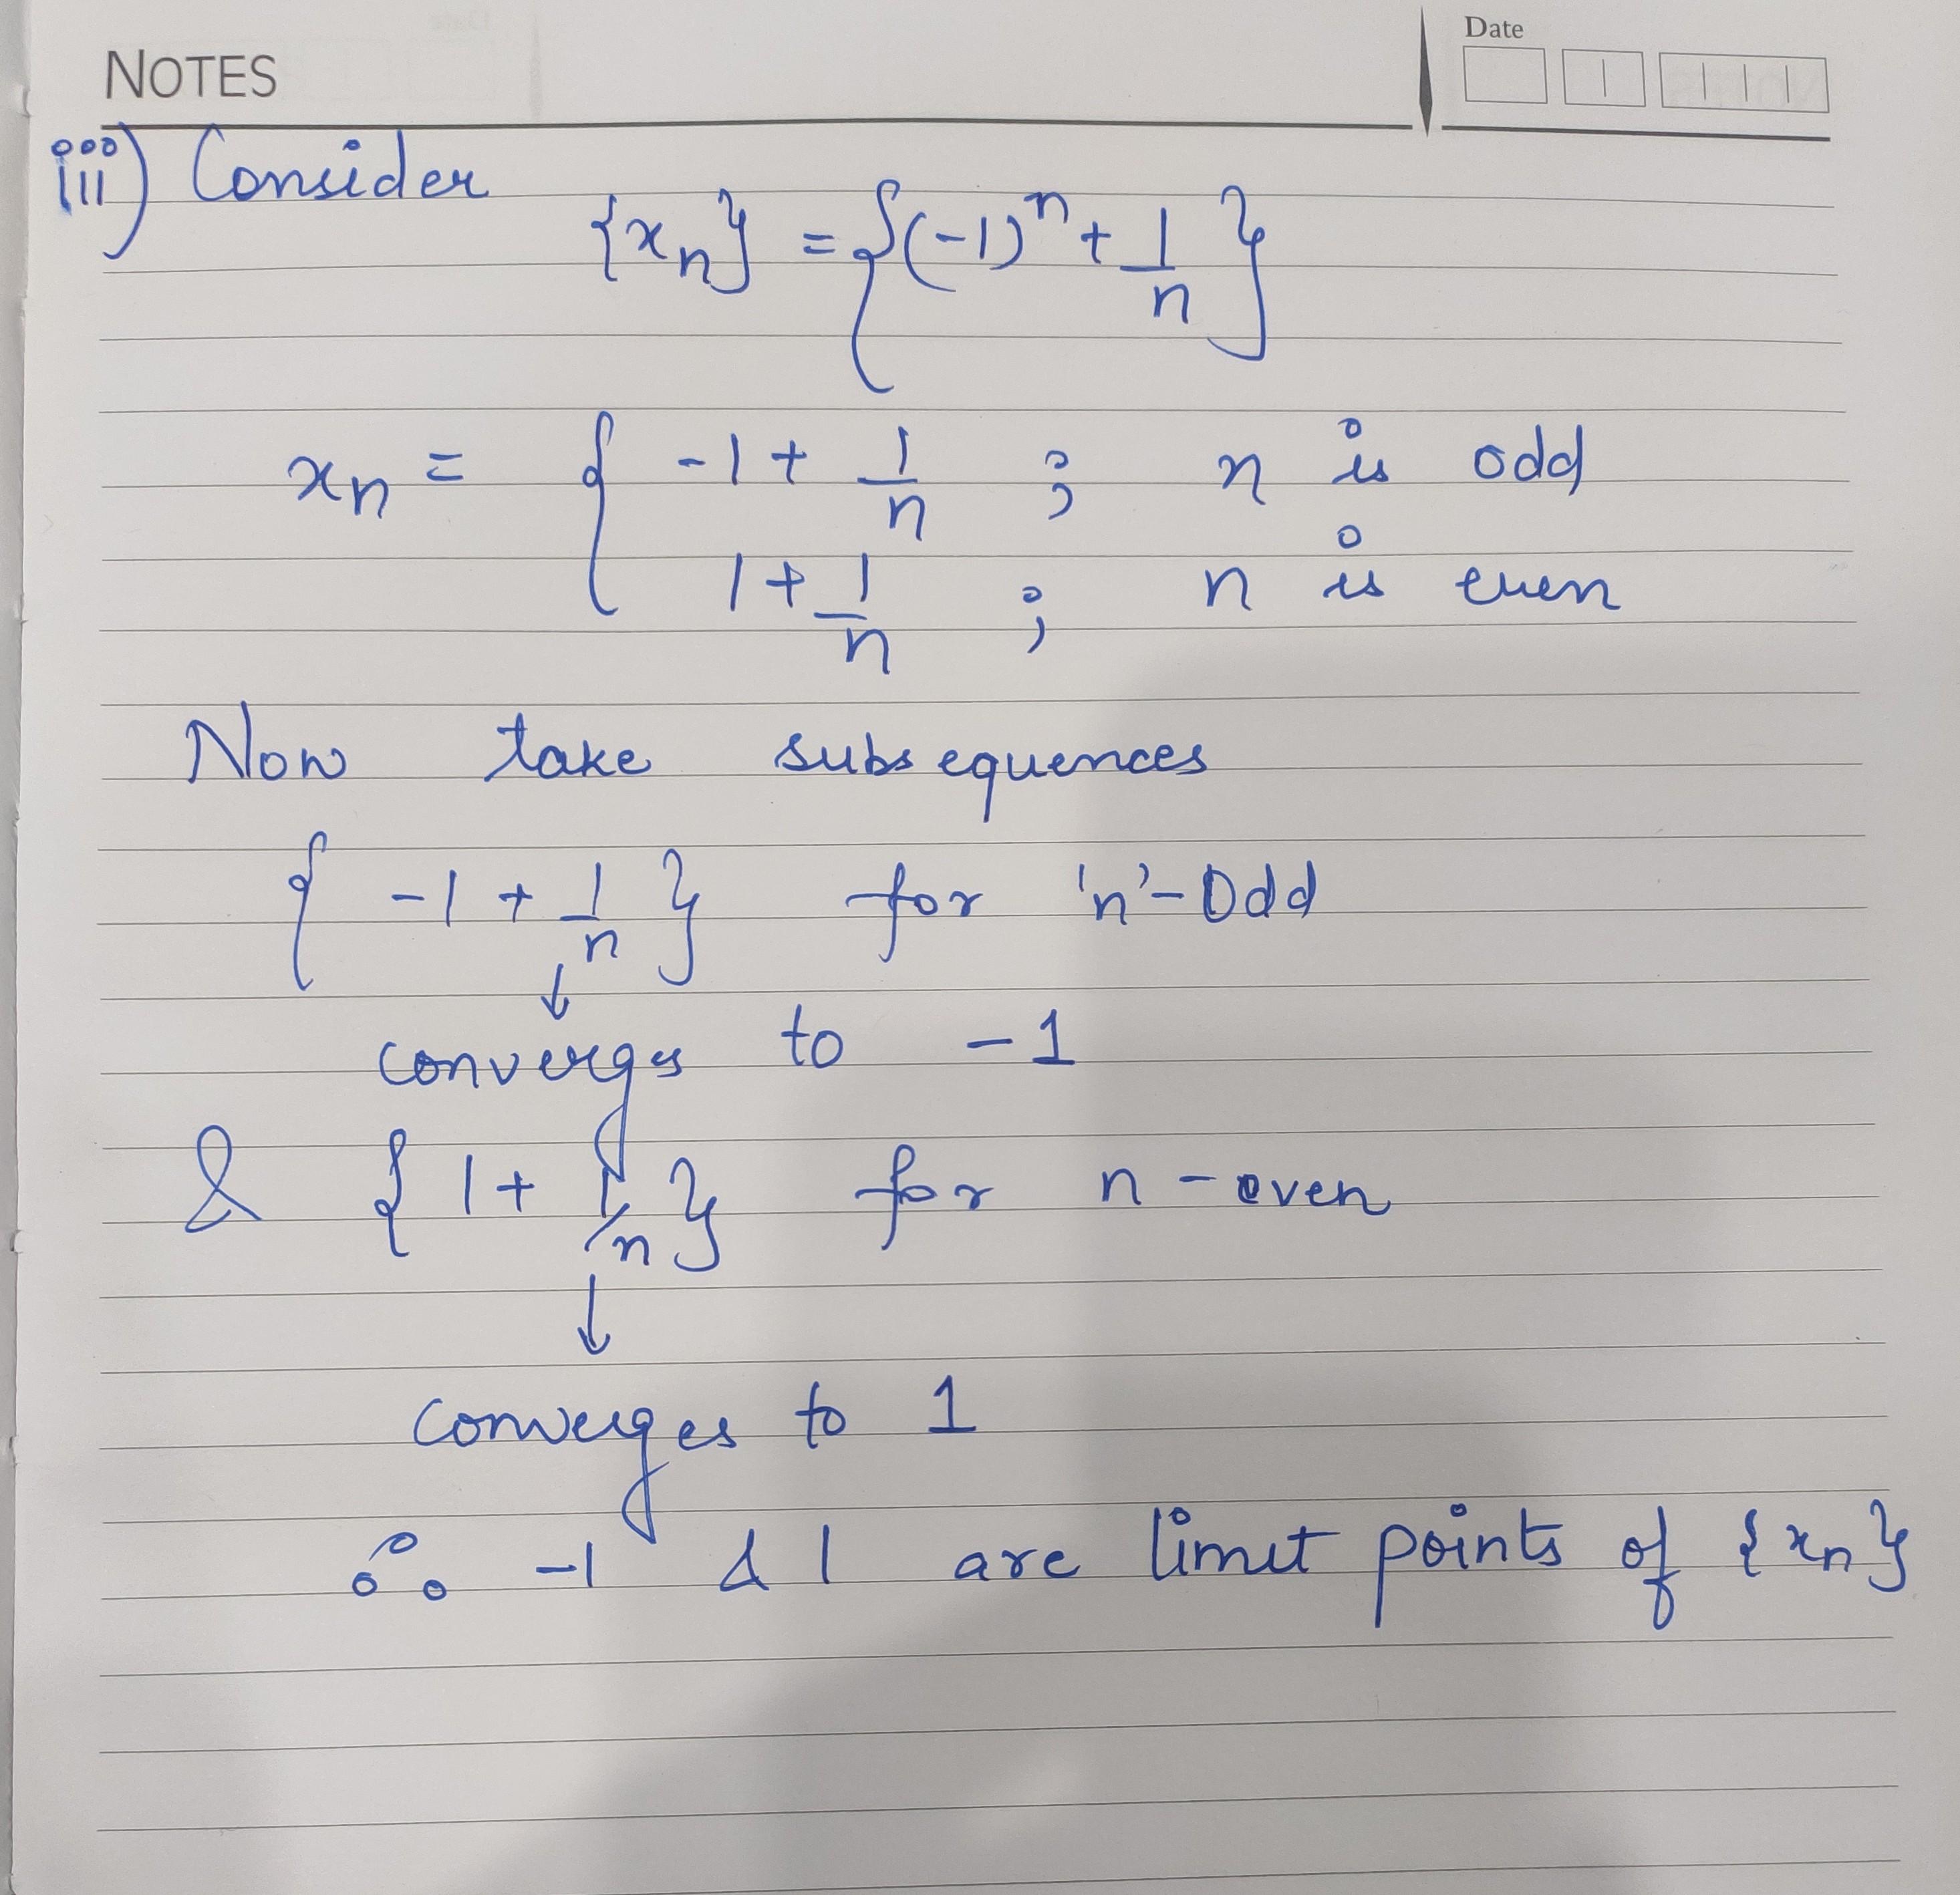 NOTES
Date
iii) Consider
{xₙ} = {(-1)ⁿ + 1/n}
xₙ = { -1 + 1/n ; n is odd
1 + 1/n ; n is even
Now take subsequences
{ -1 + 1/n } for 'n'- Odd
↓
converges to -1
& { 1 + 1/n } for n - even
↓
converges to 1
∴ -1 & 1 are limit points of {xₙ}